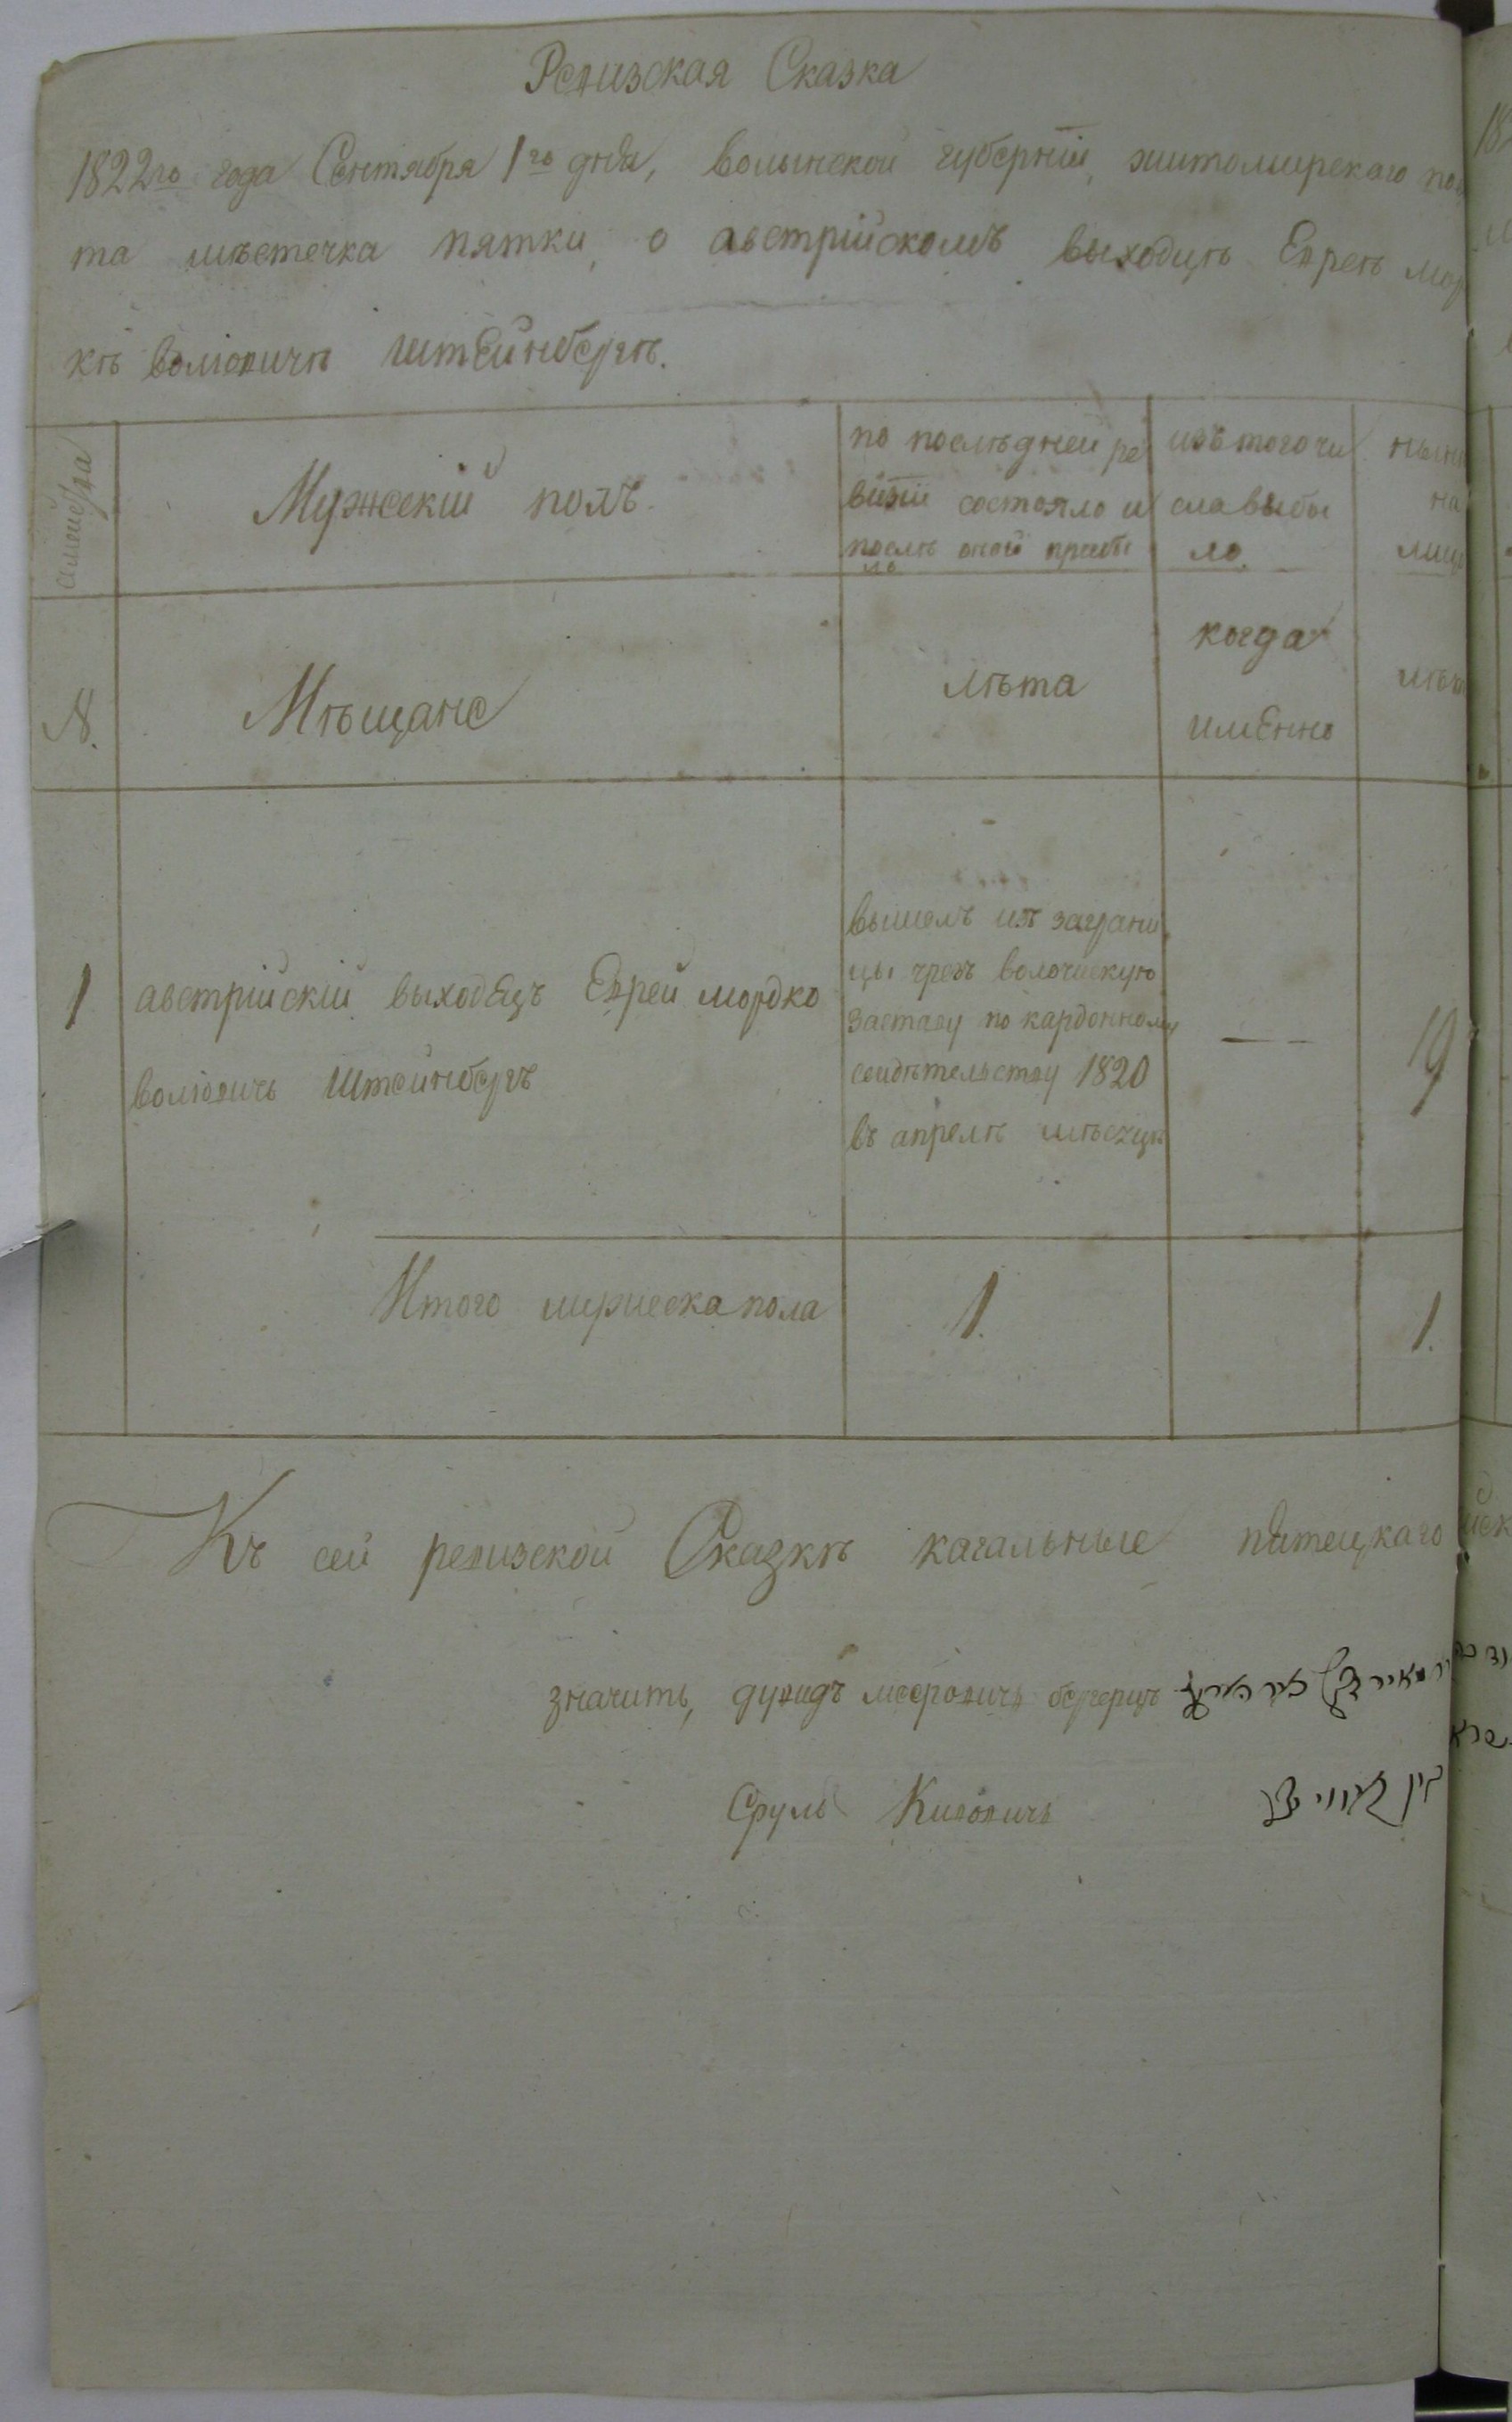 Ревизская Сказка
1822го года Сентября 1го дня, волынской губерніи, житомирскаго пов
та мѣстечка пятки, о австрійскомъ выходцѣ Евреѣ мор
кѣ волювичѣ Штейнбергѣ.
Мужескій полъ.
по послѣдней ре
визіи состояло и
послѣ оной прибы
ло
изъ того чи
сла выбы
ло.
нынѣ
на
лицо
№.
Мѣщане
лѣта
когда
именно
лѣта
1
австрійскій выходецъ Еврей мордко
волювичъ Штейнбергъ
вышелъ изъ заграни
цы чрезъ волочискую
заставу по кардонному
свидѣтельству 1820
въ апрелѣ мѣсяцѣ
19
Итого мужеска пола
1.
1.
Къ сей ревизской Сказкѣ кагальные пятецкаго
значитъ, дувидъ мееровичъ
Сруль Кивовичъ